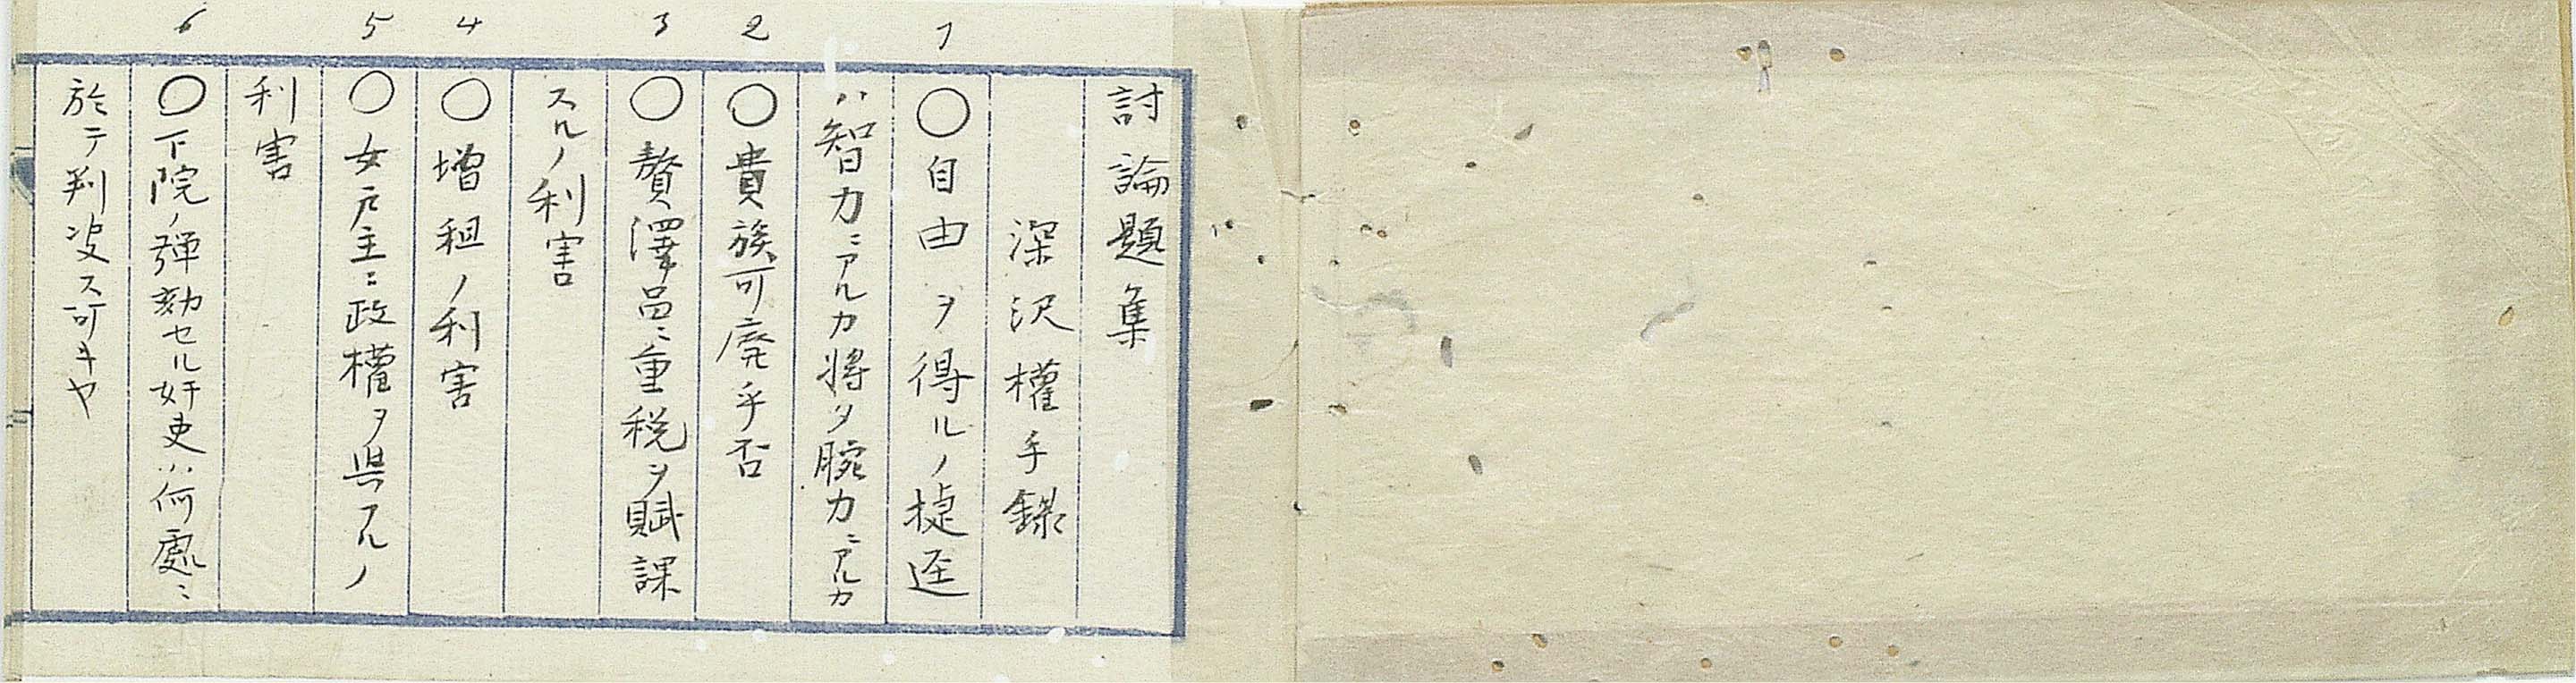 討論題集
深沢權手録
1
〇自由ヲ得ルノ捷逕
ハ智力ニアルカ将タ腕力ニアルカ
2
〇貴族可廃乎否
3
〇贅澤品ニ重税ヲ賦課
スルノ利害
4
〇増租ノ利害
5
〇女戸主ニ政權ヲ與フルノ
利害
6
〇下院ノ弾劾セル奸吏ハ何處ニ
於テ判决ス可キヤ